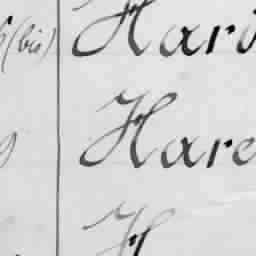 (bis) Hard
Hare
H